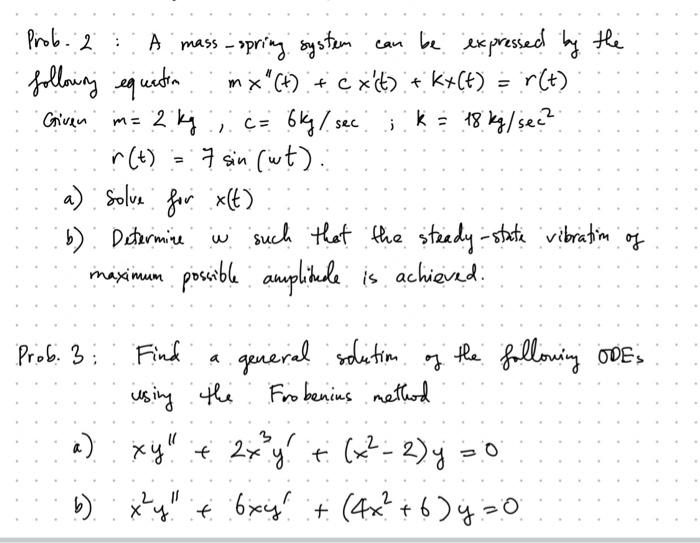 Prob. 2 : A mass-spring system can be expressed by the
following equation m x"(t) + c x'(t) + kx(t) = r(t)
Given m = 2 kg , c = 6kg/sec ; k = 18 kg/sec²
r(t) = 7 sin (wt).
a) Solve for x(t)
b) Determine w such that the steady-state vibration of
maximum possible amplitude is achieved.
Prob. 3 : Find a general solution of the following ODEs
using the Frobenius method
a) xy" + 2x³y' + (x² - 2)y = 0
b) x²y" + 6xy' + (4x² + 6)y = 0